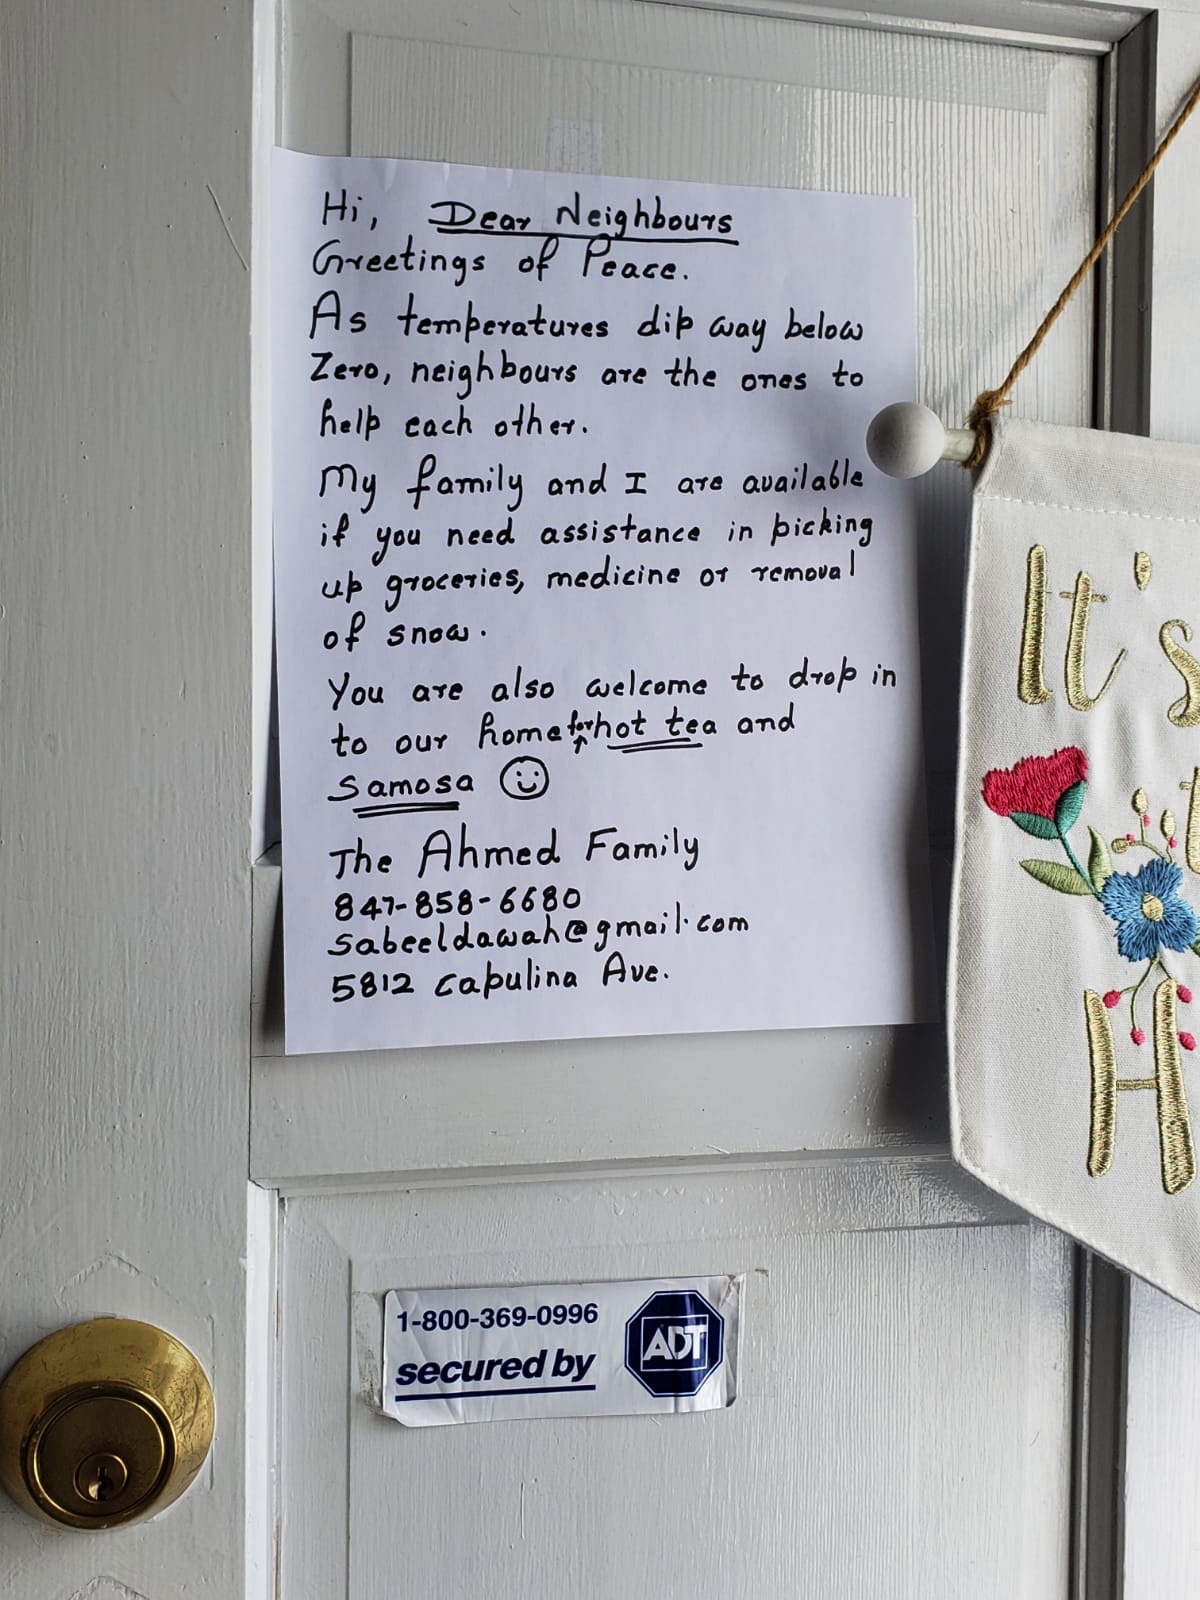 Hi, Dear Neighbours
Greetings of Peace.
As temperatures dip way below
Zero, neighbours are the ones to
help each other.
My family and I are available
if you need assistance in picking
up groceries, medicine or removal
of snow.
You are also welcome to drop in
to our home for hot tea and
Samosa ☺
The Ahmed Family
847-858-6680
sabeeldawah@gmail.com
5812 Capulina Ave.
It's
t
H
1-800-369-0996
secured by
ADT